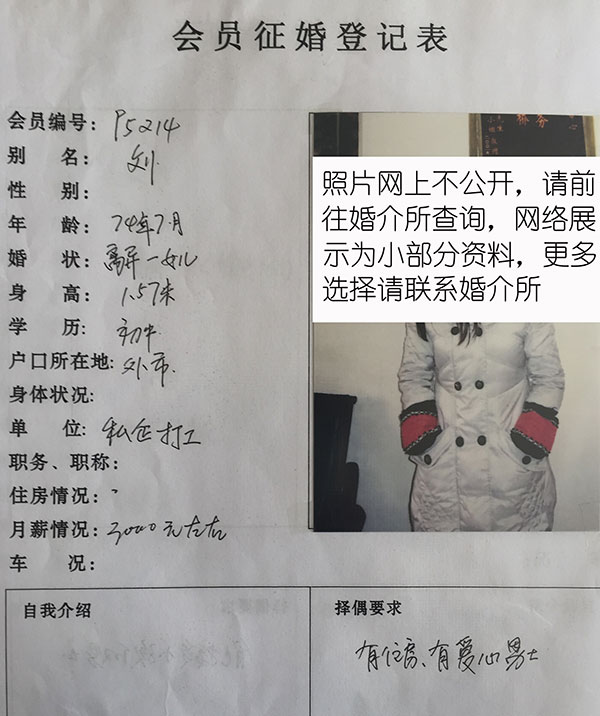 会员征婚登记表
会员编号：P5214
别 名：刘
性 别：
年 龄：74年7月
婚 状：离异一女儿
身 高：1.57米
学 历：初中
户口所在地：外市
身体状况：
单 位：私企打工
职务、职称：
住房情况：
月薪情况：3000元左右
车 况：
照片网上不公开，请前
往婚介所查询，网络展
示为小部分资料，更多
选择请联系婚介所
自我介绍
择偶要求
有住房、有爱心男士